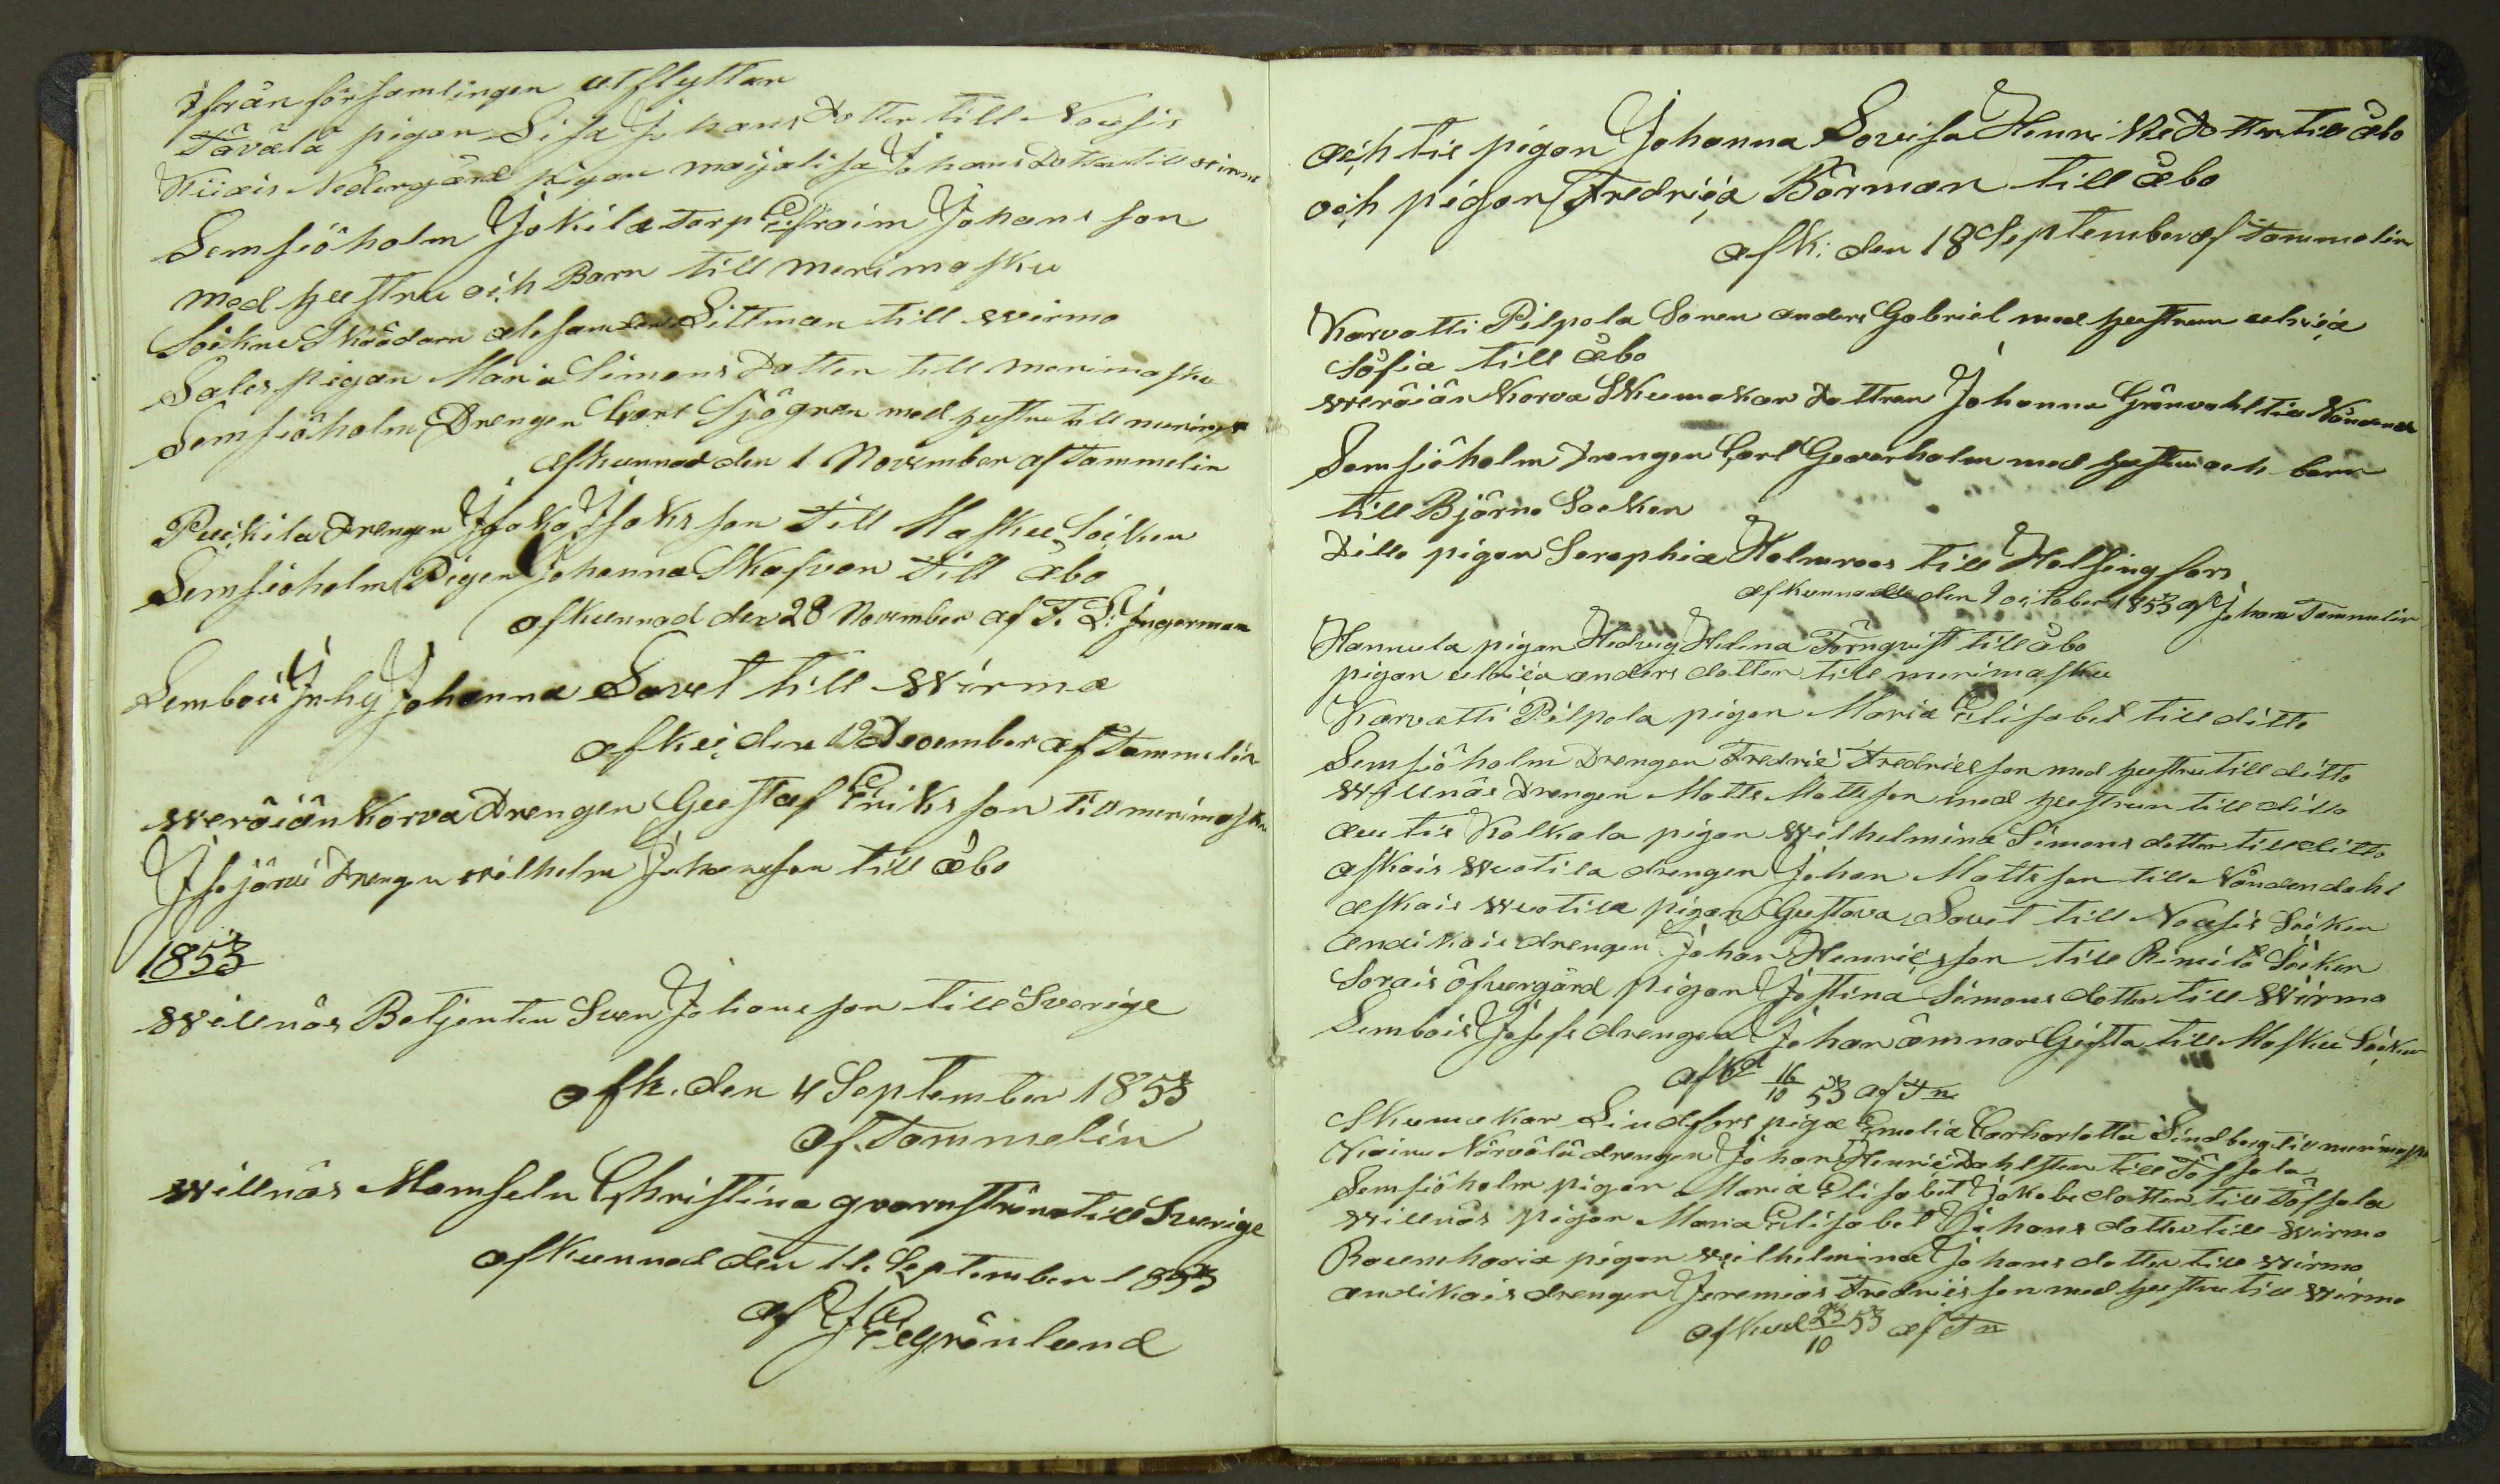 Ifrån församlingen utflyttar
Tåvåla pigan Lisa Johans Dotter till Nousis
Kiiais Nedergård pigan maijalisa Johans Dotter till wirmo
Lemsiöholm Jokila torp Efraim Johansson
med hustru och Barn till merimasku
Sokne Skrädarn alexander Littman till wirmo
Sales pigan Maria Simons Dotter till merimasku
Lemsiöholm Drengen Carl Sjögren med hustru till merimas
afkunnad den 1 November af Tammelin
Puckila Drengen Isak Isaksson till Masku Socken
Lemsioholm Pigen Johanna Skafvan till åbo
afkunnad den 28 November af F. L: Ingerman
Lembois Inhy Johanna Savet till Wirmo
afku; den 19 December af Tammelin
weräiän Korva Drengen Gustaf Eriksson till merimasku
Isojärvi Drengen wilhelm Johansson till åbo
1853
Willnäs Betjenten Sven Johansson till Sverige
afk. den 4 September 1853
af. Tammelin
Willnäs Mamseln Christina qvarnström till Sverige
afkunnad den 11. September 1853
af J E Grönlund
och til pigan Johanna Lovisa Henriks Dotter till åbo
och pigan Fredrica Bårman till åbo
afk: den 18 September af Tammelin
Karvatti Pilpola Sonen anders Gabriel med hustrun ulrica
Sofia till åbo
weräiän Korva Skumakar Dottren Johanna Grönvahl till Nåndendal
Lemsiöholm Drengen Carl Geverholm med hustru och barn
till Bjärno Socken
Ditto pigan Seraphia Holmroos till Helsingfors
afkunnade den 9 october 1853 af Johan Tammelin
Hannula pigan Hedvig Helena Törnqvist till åbo
pigan ulrica anders dotter till merimasku
Karvatti Pilpola pigan Maria Elisabet till ditto
Lemsiöholm Drengen Fredric Fredricsson med hustru till ditto
Willnäs Drengen Matts Mattsson med hustrun till ditto
autis Kalkala pigan Wilhelmina Simons dotter till ditto
askais Wuotila drengen Johan Mattsson till Nåndendahl
askais Wuotila pigan Gustava Savet till Nousis Socken
andikais drengen Johan Henricsson till Rimito Socken
Sorais öfvergård pigan Justina Simons dotter till Wirmo
Lembois Josefs drengen Johan ämnar Gifta till Masku Socken
afkd 16/10 53 af Tn
Skumakar Lindfors piga Emelia Carharlotta Lindberg till merimasku
Kairu Närvälä drengen Johan Henric Dahlsten till Töfsala
Lemsiöholm pigan Maria Elisabet Jakobs dotter till Töfsala
Willnäs pigan Maria Elisabet Johans dotter till Wirmo
Rauenharia pigan Wilhelmina Johans dotter till Wirmo
andikais drengen Jeremias Fredricsson med hustru till Wirmo
afkud 23/10 53 af Tn